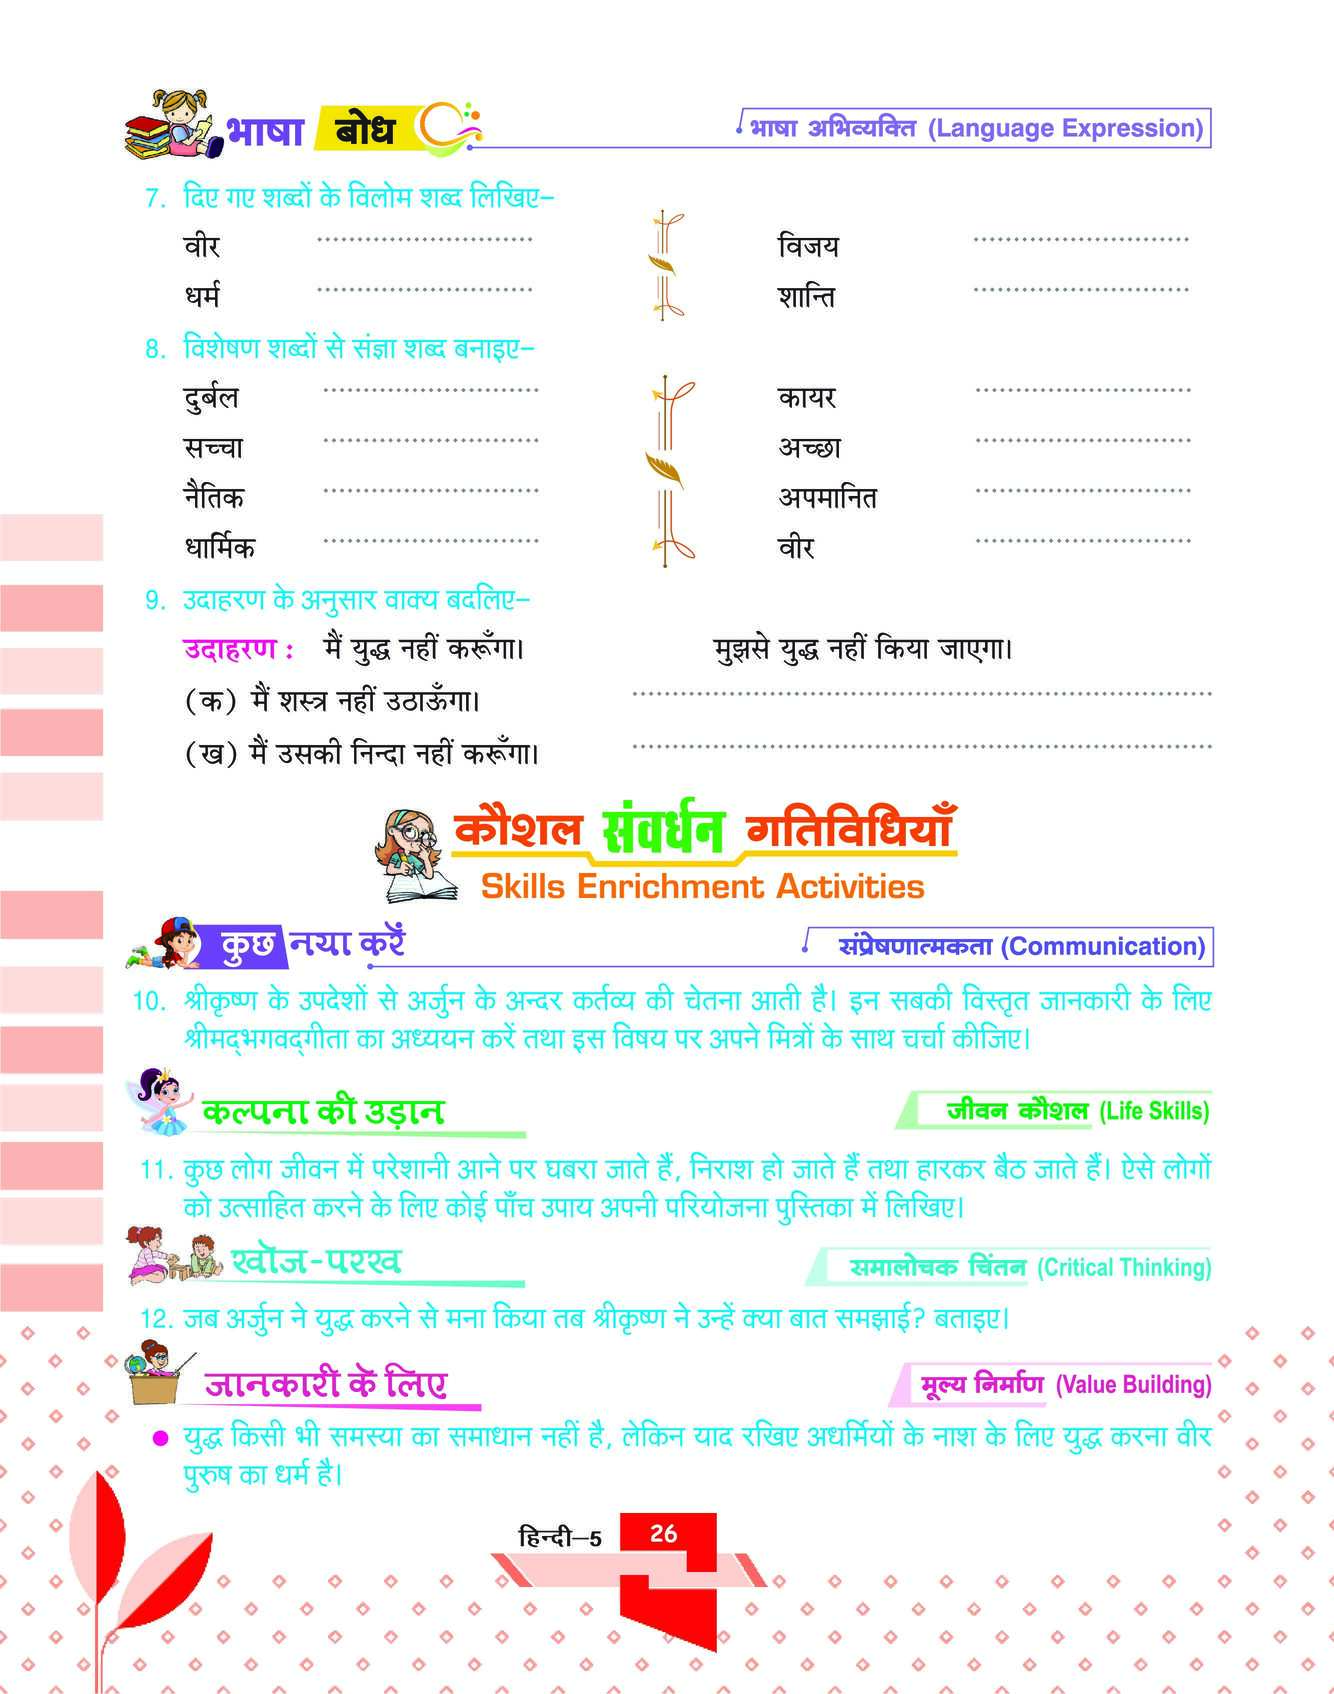 भाषा बोध
भाषा अभिव्यक्ति (Language Expression)
7. दिए गए शब्दों के विलोम शब्द लिखिए–
वीर ........................... विजय ...........................
धर्म ........................... शान्ति ...........................
8. विशेषण शब्दों से संज्ञा शब्द बनाइए–
दुर्बल ........................... कायर ...........................
सच्चा ........................... अच्छा ...........................
नैतिक ........................... अपमानित ...........................
धार्मिक ........................... वीर ...........................
9. उदाहरण के अनुसार वाक्य बदलिए–
उदाहरण : मैं युद्ध नहीं करूँगा। मुझसे युद्ध नहीं किया जाएगा।
(क) मैं शस्त्र नहीं उठाऊँगा। ...........................
(ख) मैं उसकी निन्दा नहीं करूँगा। ...........................
कौशल संवर्धन गतिविधियाँ
Skills Enrichment Activities
कुछ नया करें
संप्रेषणात्मकता (Communication)
10. श्रीकृष्ण के उपदेशों से अर्जुन के अन्दर कर्तव्य की चेतना आती है। इन सबकी विस्तृत जानकारी के लिए
श्रीमद्‌भगवद्‌गीता का अध्ययन करें तथा इस विषय पर अपने मित्रों के साथ चर्चा कीजिए।
कल्पना की उड़ान
जीवन कौशल (Life Skills)
11. कुछ लोग जीवन में परेशानी आने पर घबरा जाते हैं, निराश हो जाते हैं तथा हारकर बैठ जाते हैं। ऐसे लोगों
को उत्साहित करने के लिए कोई पाँच उपाय अपनी परियोजना पुस्तिका में लिखिए।
खोज-परख
समालोचक चिंतन (Critical Thinking)
12. जब अर्जुन ने युद्ध करने से मना किया तब श्रीकृष्ण ने उन्हें क्या बात समझाई? बताइए।
जानकारी के लिए
मूल्य निर्माण (Value Building)
● युद्ध किसी भी समस्या का समाधान नहीं है, लेकिन याद रखिए अधर्मियों के नाश के लिए युद्ध करना वीर
पुरुष का धर्म है।
हिन्दी–5 26